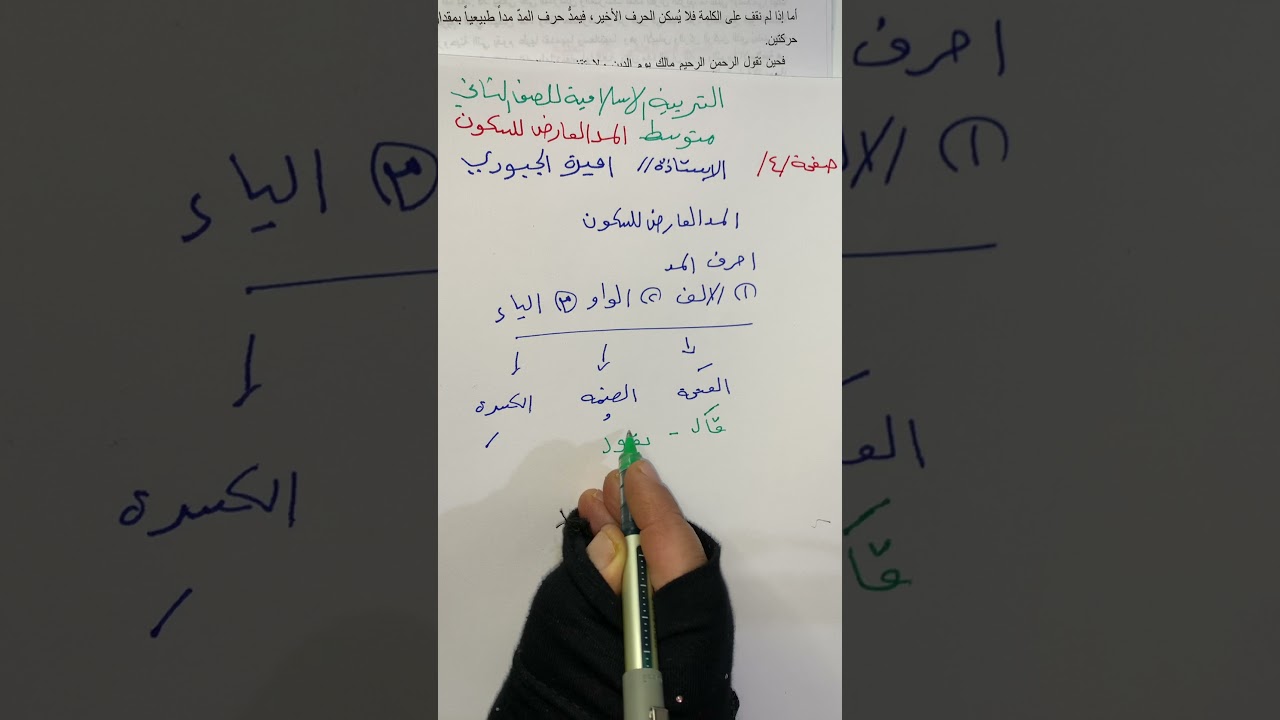 أما إذا لم نقف على الكلمة فلا يُسكن الحرف الأخير، فيمدُّ حرف المدّ مداً طبيعياً بمقدار
حركتين.
فحين تقول الرحمن الرحيم مالك يوم الدين
التربية الاسلامية للصف الثاني
متوسط المد العارض للسكون
صفحة /٤/ الاستاذة // اميرة الجبوري
المد العارض للسكون
احرف المد
① الالف ② الواو ③ الياء
الفتحة الضمه الكسرة
قَال - نقول